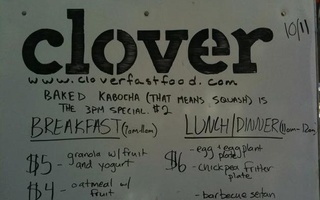 10/11
clover
www.cloverfastfood.com
BAKED KABOCHA (THAT MEANS SQUASH) IS
THE 3PM SPECIAL. $2
BREAKFAST (7am-11am)
$5 - granola w/ fruit
and yogurt
$4 - oatmeal w/
fruit
LUNCH/DINNER (11am-12am)
$6 - egg + eggplant
plate
- chickpea fritter
plate
- barbecue seitan